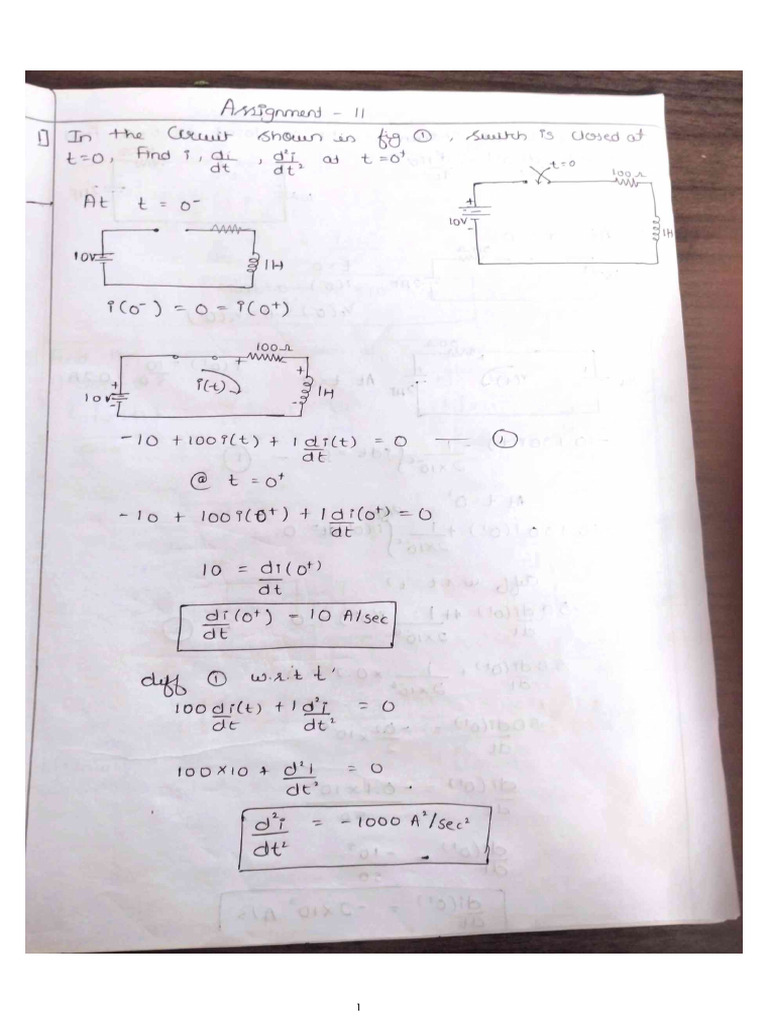 Assignment - 11
1] In the Circuit shown in fig ①, switch is closed at
t=0, Find i, di/dt, d²i/dt² at t=0⁺
t=0
100Ω
10V
+
-
1H
At t = 0⁻
10V
1H
i(0⁻) = 0 = i(0⁺)
100Ω
+
+
+
10V
i(t)
1H
-
-
-10 + 100i(t) + 1 di(t)/dt = 0 — ①
@ t = 0⁺
-10 + 100i(0⁺) + 1 di(0⁺)/dt = 0
10 = di(0⁺)/dt
di(0⁺)/dt - 10 A/sec
diff ① w.r.t t'
100 di(t)/dt + 1 d²i/dt² = 0
100×10 + d²i/dt² = 0
d²i/dt² = -1000 A²/sec²
1